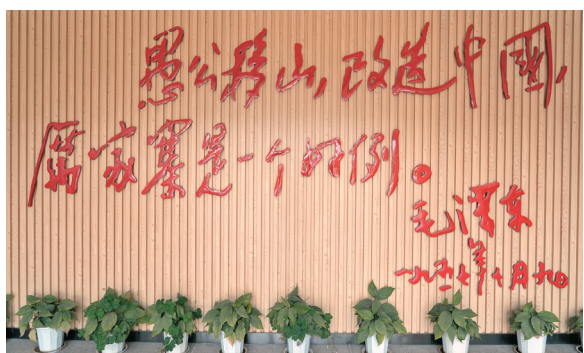 愚公移山,改造中國,
厲家寨是一个好例。
毛澤东
一九五七年十月九日